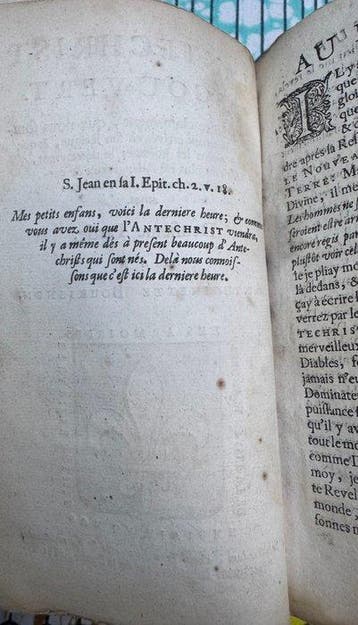 S. Jean en ſa I. Epit. ch. 2. v. 18.
Mes petits enfans, voici la derniere heure; & comme
vous avez oui que l'ANTECHRIST viendra,
il y a même dès à preſent beaucoup d'Ante-
chriſts qui ſont nés. Delà nous connoiſ-
ſons que c'eſt ici la derniere heure.
AU
IL y a
que
glo
que
& c
dre après ſa Reſ
LE NOUVE
TERRE. M
Divine, il m
Les hommes ne ſ
ſeroient eſtre at
encore régis par
plûtôt voir cel
te je pliay mo
là dedans, &
çay à écrire
verrez par le
TECHRIS
merveilleux
Diables, ſo
jamais n'eu
Dominate
puiſſance ſ
qu'il y av
tout le mo
comme D
moy, je
te Revel
monde
ſonnes n